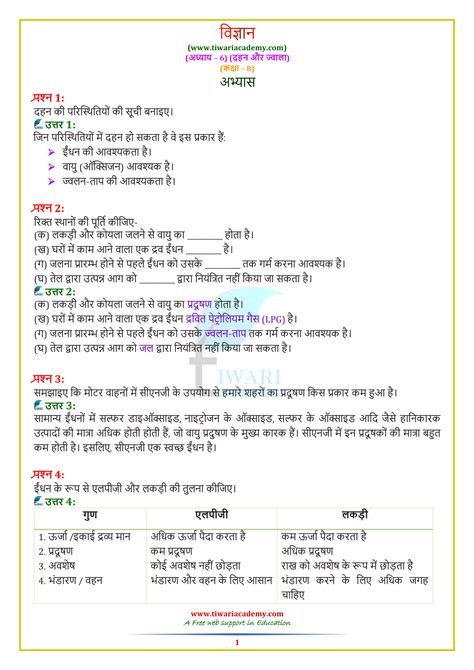 विज्ञान
(www.tiwariacademy.com)
(अध्याय – 6) (दहन और ज्वाला)
(कक्षा – 8)
अभ्यास
प्रश्न 1:
दहन की परिस्थितियों की सूची बनाइए।
उत्तर 1:
जिन परिस्थितियों में दहन हो सकता है वे इस प्रकार हैं:
➢ ईंधन की आवश्यकता है।
➢ वायु (ऑक्सिजन) आवश्यक है।
➢ ज्वलन-ताप की आवश्यकता है।
प्रश्न 2:
रिक्त स्थानों की पूर्ति कीजिए-
(क) लकड़ी और कोयला जलने से वायु का ________ होता है।
(ख) घरों में काम आने वाला एक द्रव ईंधन ________ है।
(ग) जलना प्रारम्भ होने से पहले ईंधन को उसके ________ तक गर्म करना आवश्यक है।
(घ) तेल द्वारा उत्पन्न आग को ________ द्वारा नियंत्रित नहीं किया जा सकता है।
उत्तर 2:
(क) लकड़ी और कोयला जलने से वायु का प्रदूषण होता है।
(ख) घरों में काम आने वाला एक द्रव ईंधन द्रवित पेट्रोलियम गैस (LPG) है।
(ग) जलना प्रारम्भ होने से पहले ईंधन को उसके ज्वलन-ताप तक गर्म करना आवश्यक है।
(घ) तेल द्वारा उत्पन्न आग को जल द्वारा नियंत्रित नहीं किया जा सकता है।
TIWARI
प्रश्न 3:
समझाइए कि मोटर वाहनों में सीएनजी के उपयोग से हमारे शहरों का प्रदूषण किस प्रकार कम हुआ है।
उत्तर 3:
सामान्य ईंधनों में सल्फर डाइऑक्साइड, नाइट्रोजन के ऑक्साइड, सल्फर के ऑक्साइड आदि जैसे हानिकारक
उत्पादों की मात्रा अधिक होती होती हैं, जो वायु प्रदुषण के मुख्य कारक हैं। सीएनजी में इन प्रदूषकों की मात्रा बहुत
कम होती है। इसलिए, सीएनजी एक स्वच्छ ईंधन है।
प्रश्न 4:
ईंधन के रूप से एलपीजी और लकड़ी की तुलना कीजिए।
उत्तर 4:
गुण एलपीजी लकड़ी
1. ऊर्जा /इकाई द्रव्य मान अधिक ऊर्जा पैदा करता है कम ऊर्जा पैदा करता है
2. प्रदूषण कम प्रदूषण अधिक प्रदूषण
3. अवशेष कोई अवशेष नहीं छोड़ता राख को अवशेष के रूप में छोड़ता है
4. भंडारण / वहन भंडारण और वहन के लिए आसान भंडारण करने के लिए अधिक जगह
चाहिए
www.tiwariacademy.com
A Free web support in Education
1